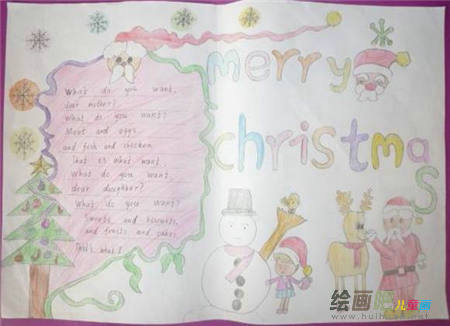 merry
christmas
What do you want,
dear mother?
What do you want?
Meat and eggs
and fish and chicken
That is what want.
What do you want,
dear daughter?
What do you want?
Sweets and biscuits,
and fruits and cakes,
That's what I
绘画 儿童画